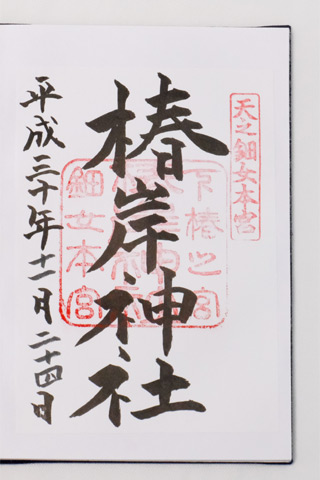 天之鈿女本宮
椿岸神社
下椿之宮
細女本宮
平成三十年十一月二十四日